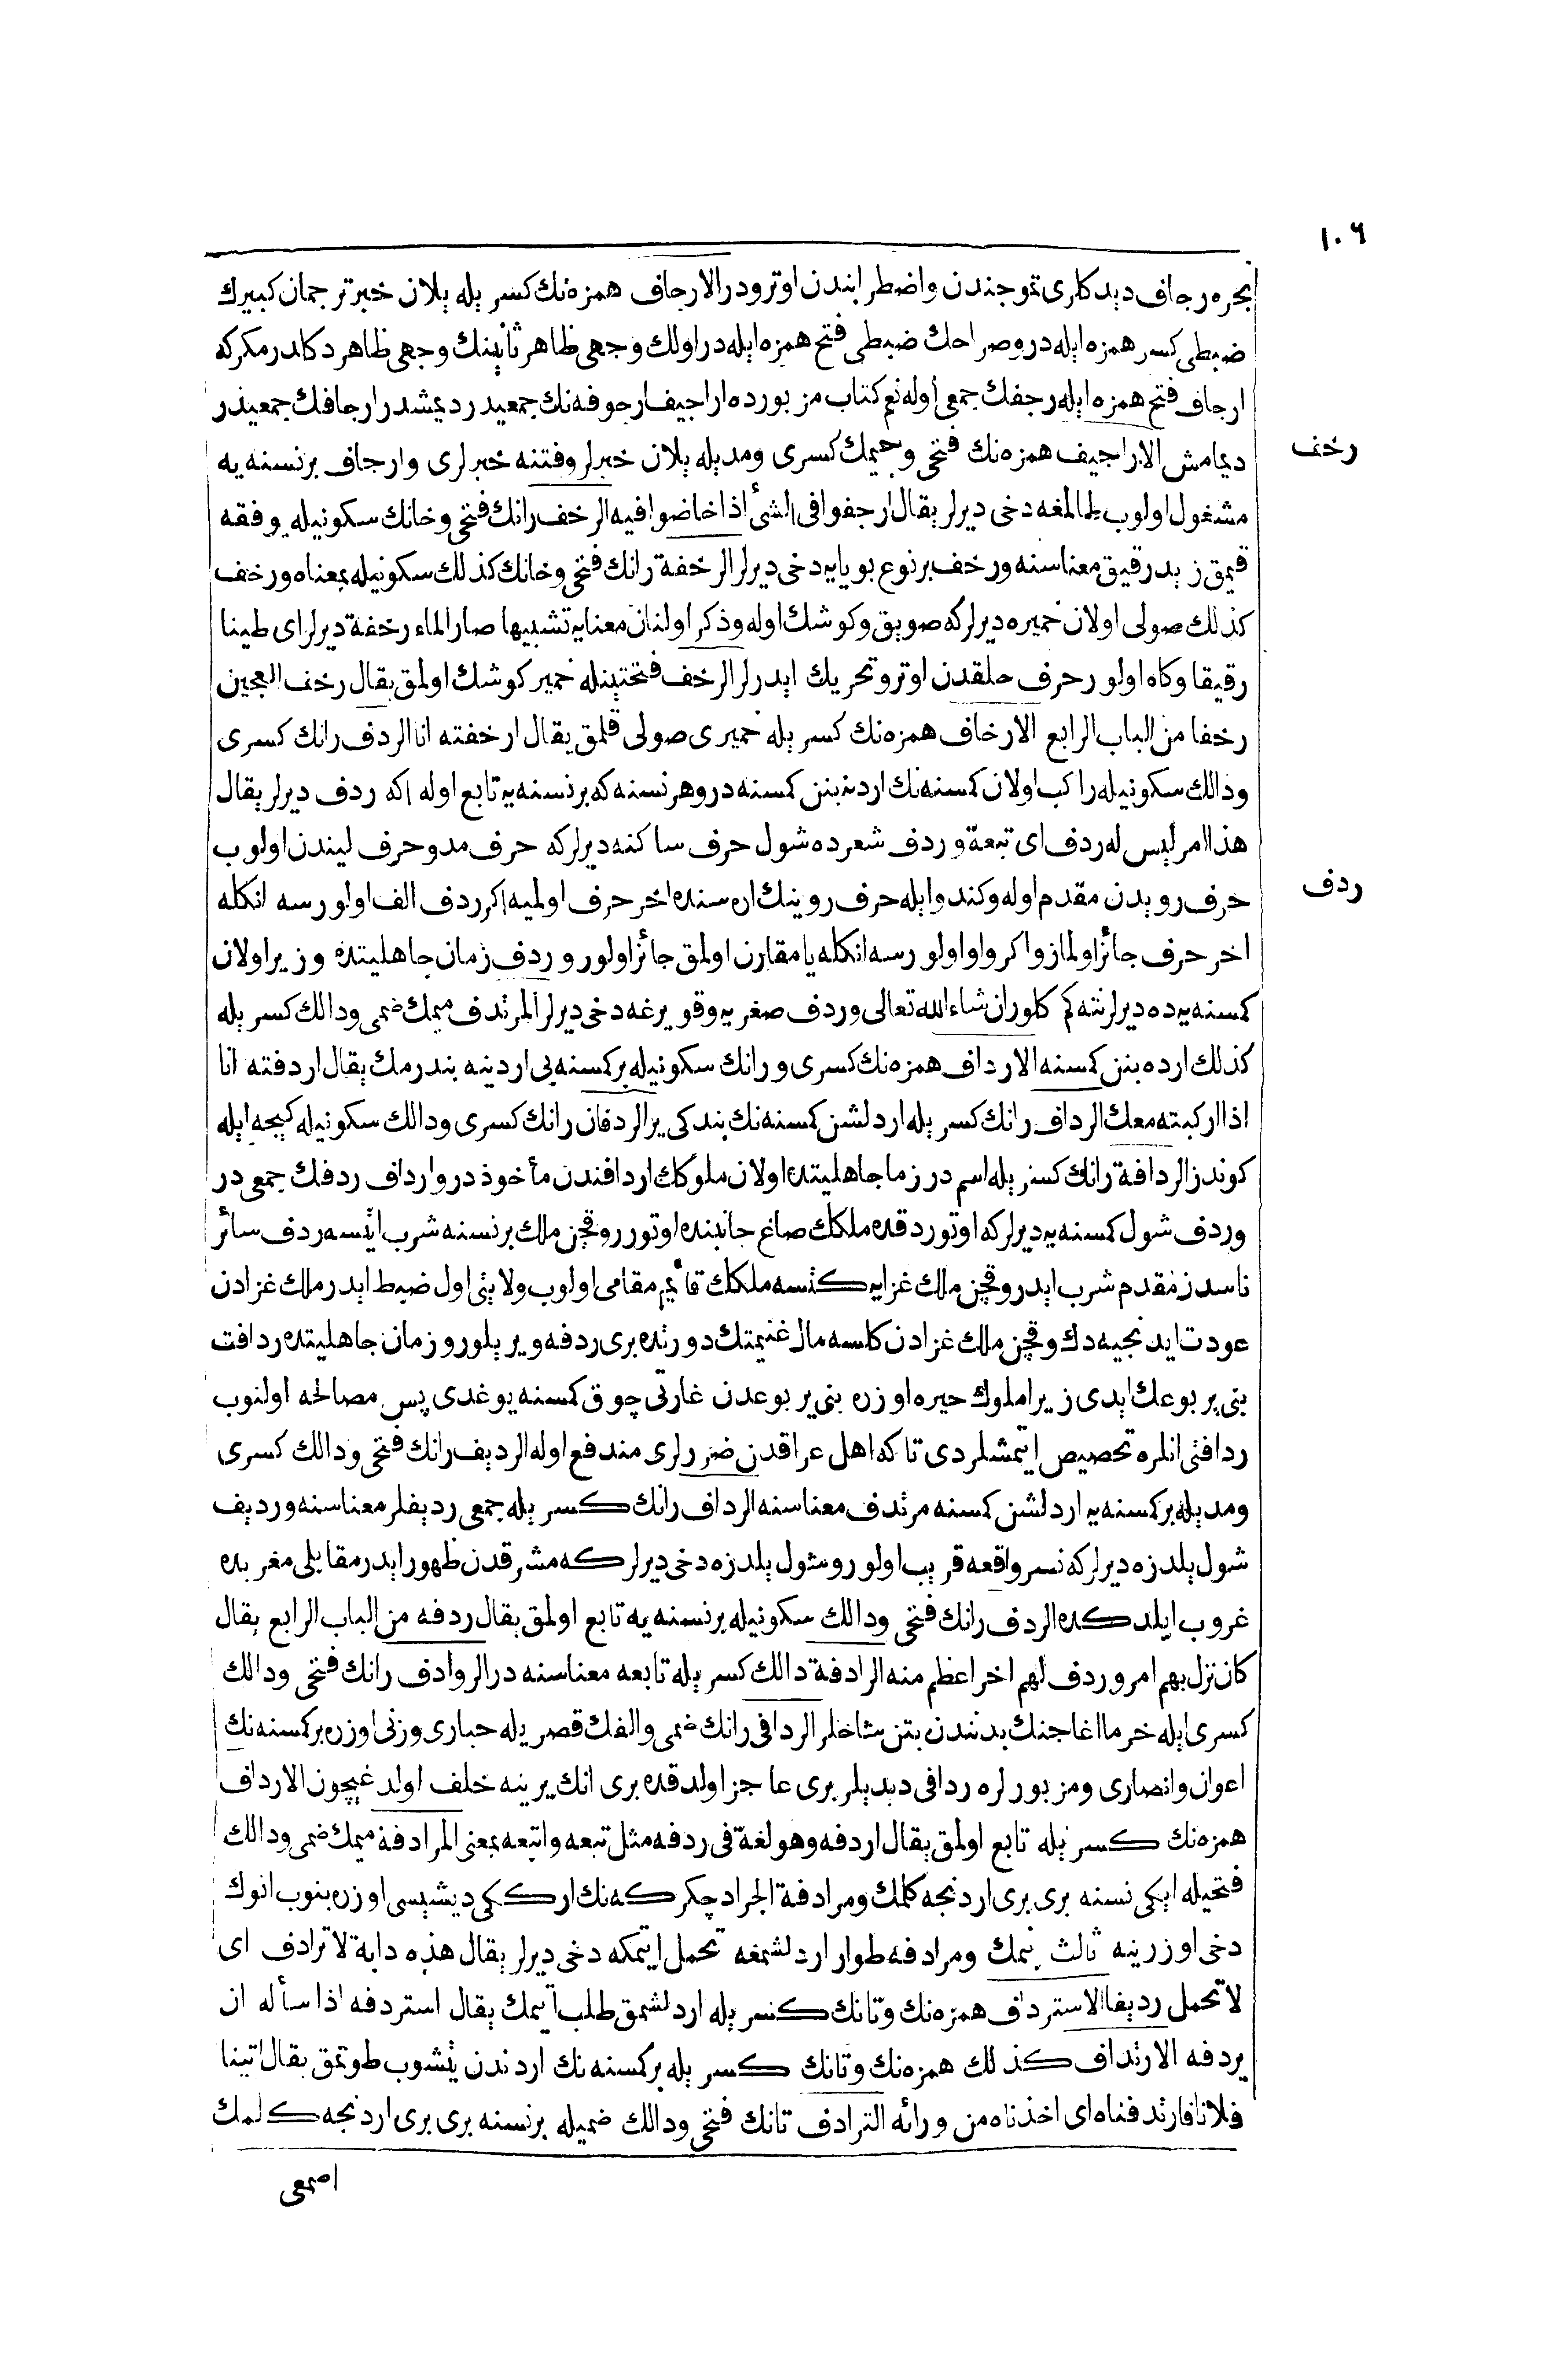 ١٠٦
بحره رجاف ديدكلرى تموجندن واضطرابندن اوتوردر الارجاف همزه نك كسريله يلان خبر ترجمان كبيرك
ضبطى كسر همزه ايله در وصراحك ضبطى فتح همزه ايله در اولك وجهى ظاهر ثانينك وجهى ظاهر دكلدر مكركه
ارجاف فتح همزه ايله رجفك جمعى اوله نعم كتاب مزبورده اراجيف ارجوفه نك جمعيدر ديمشدر ارجافك جمعيدر
رخف
ديمامش الاراجيف همزه نك فتحى وجيمك كسرى ومديله يلان خبرلر وفتنه خبرلرى وارجاف برنسنه يه
مشغول اولوب طالمغه دخى ديرلر يقال ارجفوا فى الشئ اذا خاضوا فيه الرخف رانك فتحى وخانك سكونيله يوفقه
قيمق زبد رقيق معناسنه ورخف برنوع بويايه دخى ديرلر الرخفة رانك فتحى وخانك كذلك سكونيله بمعناه ورخف
كذلك صولى اولان خميره ديرلركه صويق وكوشك اوله وذكر اولنان معنايه تشبيها صار الماء رخفة ديرلر اى طينا
رقيقا وكاه اولور حرف حلقدن اوترو تحريك ايدرلر الرخف فتحتينله خمير كوشك اولمق يقال رخف العجين
رخفا من الباب الرابع الارخاف همزه نك كسريله خميرى صولى قلمق يقال ارخفته انا الردف رانك كسرى
ودالك سكونيله راكب اولان كمسنه نك اردينه بنن كمسنه در وهر نسنه كه برنسنه يه تابع اوله اكه ردف ديرلر يقال
هذا امر ليس له ردف اى تبعة وردف شعرده شول حرف ساكنه ديرلركه حرف مد وحرف ليندن اولوب
ردف
حرف رويدن مقدم اوله وكندو ايله حرف روينك اره سنده اخر حرف اولميه اكر ردف الف اولورسه انكله
اخر حرف جائز اولماز واكر واو اولورسه انكله يا مقارن اولمق جائز اولور وردف زمان جاهليتده وزير اولان
كمسنه يه ده ديرلر نته كم كلور ان شاء الله تعالى وردف صغريه وقويرغه دخى ديرلر المرتدف ميمك ضمى ودالك كسريله
كذلك ارده بنن كمسنه الارداف همزه نك كسرى ورانك سكونيله بركمسنه يى اردينه بندرمك يقال اردفته انا
اذا اركبته معك الرداف رانك كسريله اردلشن كمسنه نك بندكى ير الردفان رانك كسرى ودالك سكونيله كيجه ايله
كوندز الردافة رانك كسريله اسم در زما جاهليتده اولان ملوكك اردافندن مأخوذدر وارداف ردفك جمعى در
وردف شول كمسنه يه ديرلركه اوتوردقده ملكك صاغ جانبنده اوتورر وقچن ملك برنسنه شرب ايتسه ردف سائر
ناسدن مقدم شرب ايدر وقچن ملك غزايه كتسه ملكك قائم مقامى اولوب ولايتى اول ضبط ايدر ملك غزادن
عودت ايدنجيه دك وقچن ملك غزادن كلسه مال غنيمتك دورتده برى ردفه ويريلور وزمان جاهليتده ردافت
بنى يربوعك ايدى زيرا ملوك حيره اوزره بنى يربوعدن غارتى چوق كمسنه يوغدى پس مصالحه اولنوب
ردافتى انلره تخصيص ايتمشلردى تاكه اهل عراقدن ضررلرى مندفع اوله الرديف رانك فتحى ودالك كسرى
ومديله بركمسنه يه اردلشن كمسنه مرتدف معناسنه الرداف رانك كسريله جمعى رديفلر معناسنه ورديف
شول يلدزه ديرلركه نسر واقعه قريب اولور وشول يلدزه دخى ديرلركه مشرقدن ظهور ايدر مقابلى مغربده
غروب ايلدكده الردف رانك فتحى ودالك سكونيله برنسنه يه تابع اولمق يقال ردفه من الباب الرابع يقال
كان نزل بهم امر وردف لهم اخر اعظم منه الرادفة دالك كسريله تابعه معناسنه در الروادف رانك فتحى ودالك
كسرى ايله خرما اغاجنك بدنندن بتن شاخلر الردافى رانك ضمى والفك قصريله حبارى وزنى اوزره بركمسنه نك
اعوان وانصارى ومزبورلره ردافى ديديلر برى عاجز اولدقده برى انك يرينه خلف اولدغيچون الارداف
همزه نك كسريله تابع اولمق يقال اردفه وهو لغة فى ردفه مثل تبعه واتبعه بمعنى المرادفة ميمك ضمى ودالك
فتحيله ايكى نسنه برى برى اردنجه كلمك ومرادفة الجراد چكركه نك اركى ديشيسى اوزره بنوب انوك
دخى اوزرينه ثالث بنمك ومرادفه طوار اردلشمغه تحمل ايتمكه دخى ديرلر يقال هذه دابة لا ترادف اى
لا تحمل رديفا الاستردف همزه نك وتانك كسريله اردلشمق طلب ايتمك يقال استردفه اذا سأله ان
يردفه الارتداف كذلك همزه نك وتانك كسريله بركمسنه نك اردندن يتشوب طوتمق يقال اتينا
فلانا فارتدفناه اى اخذناه من ورائه الترادف تانك فتحى ودالك ضميله برنسنه برى برى اردنجه كلمك
اصمعى